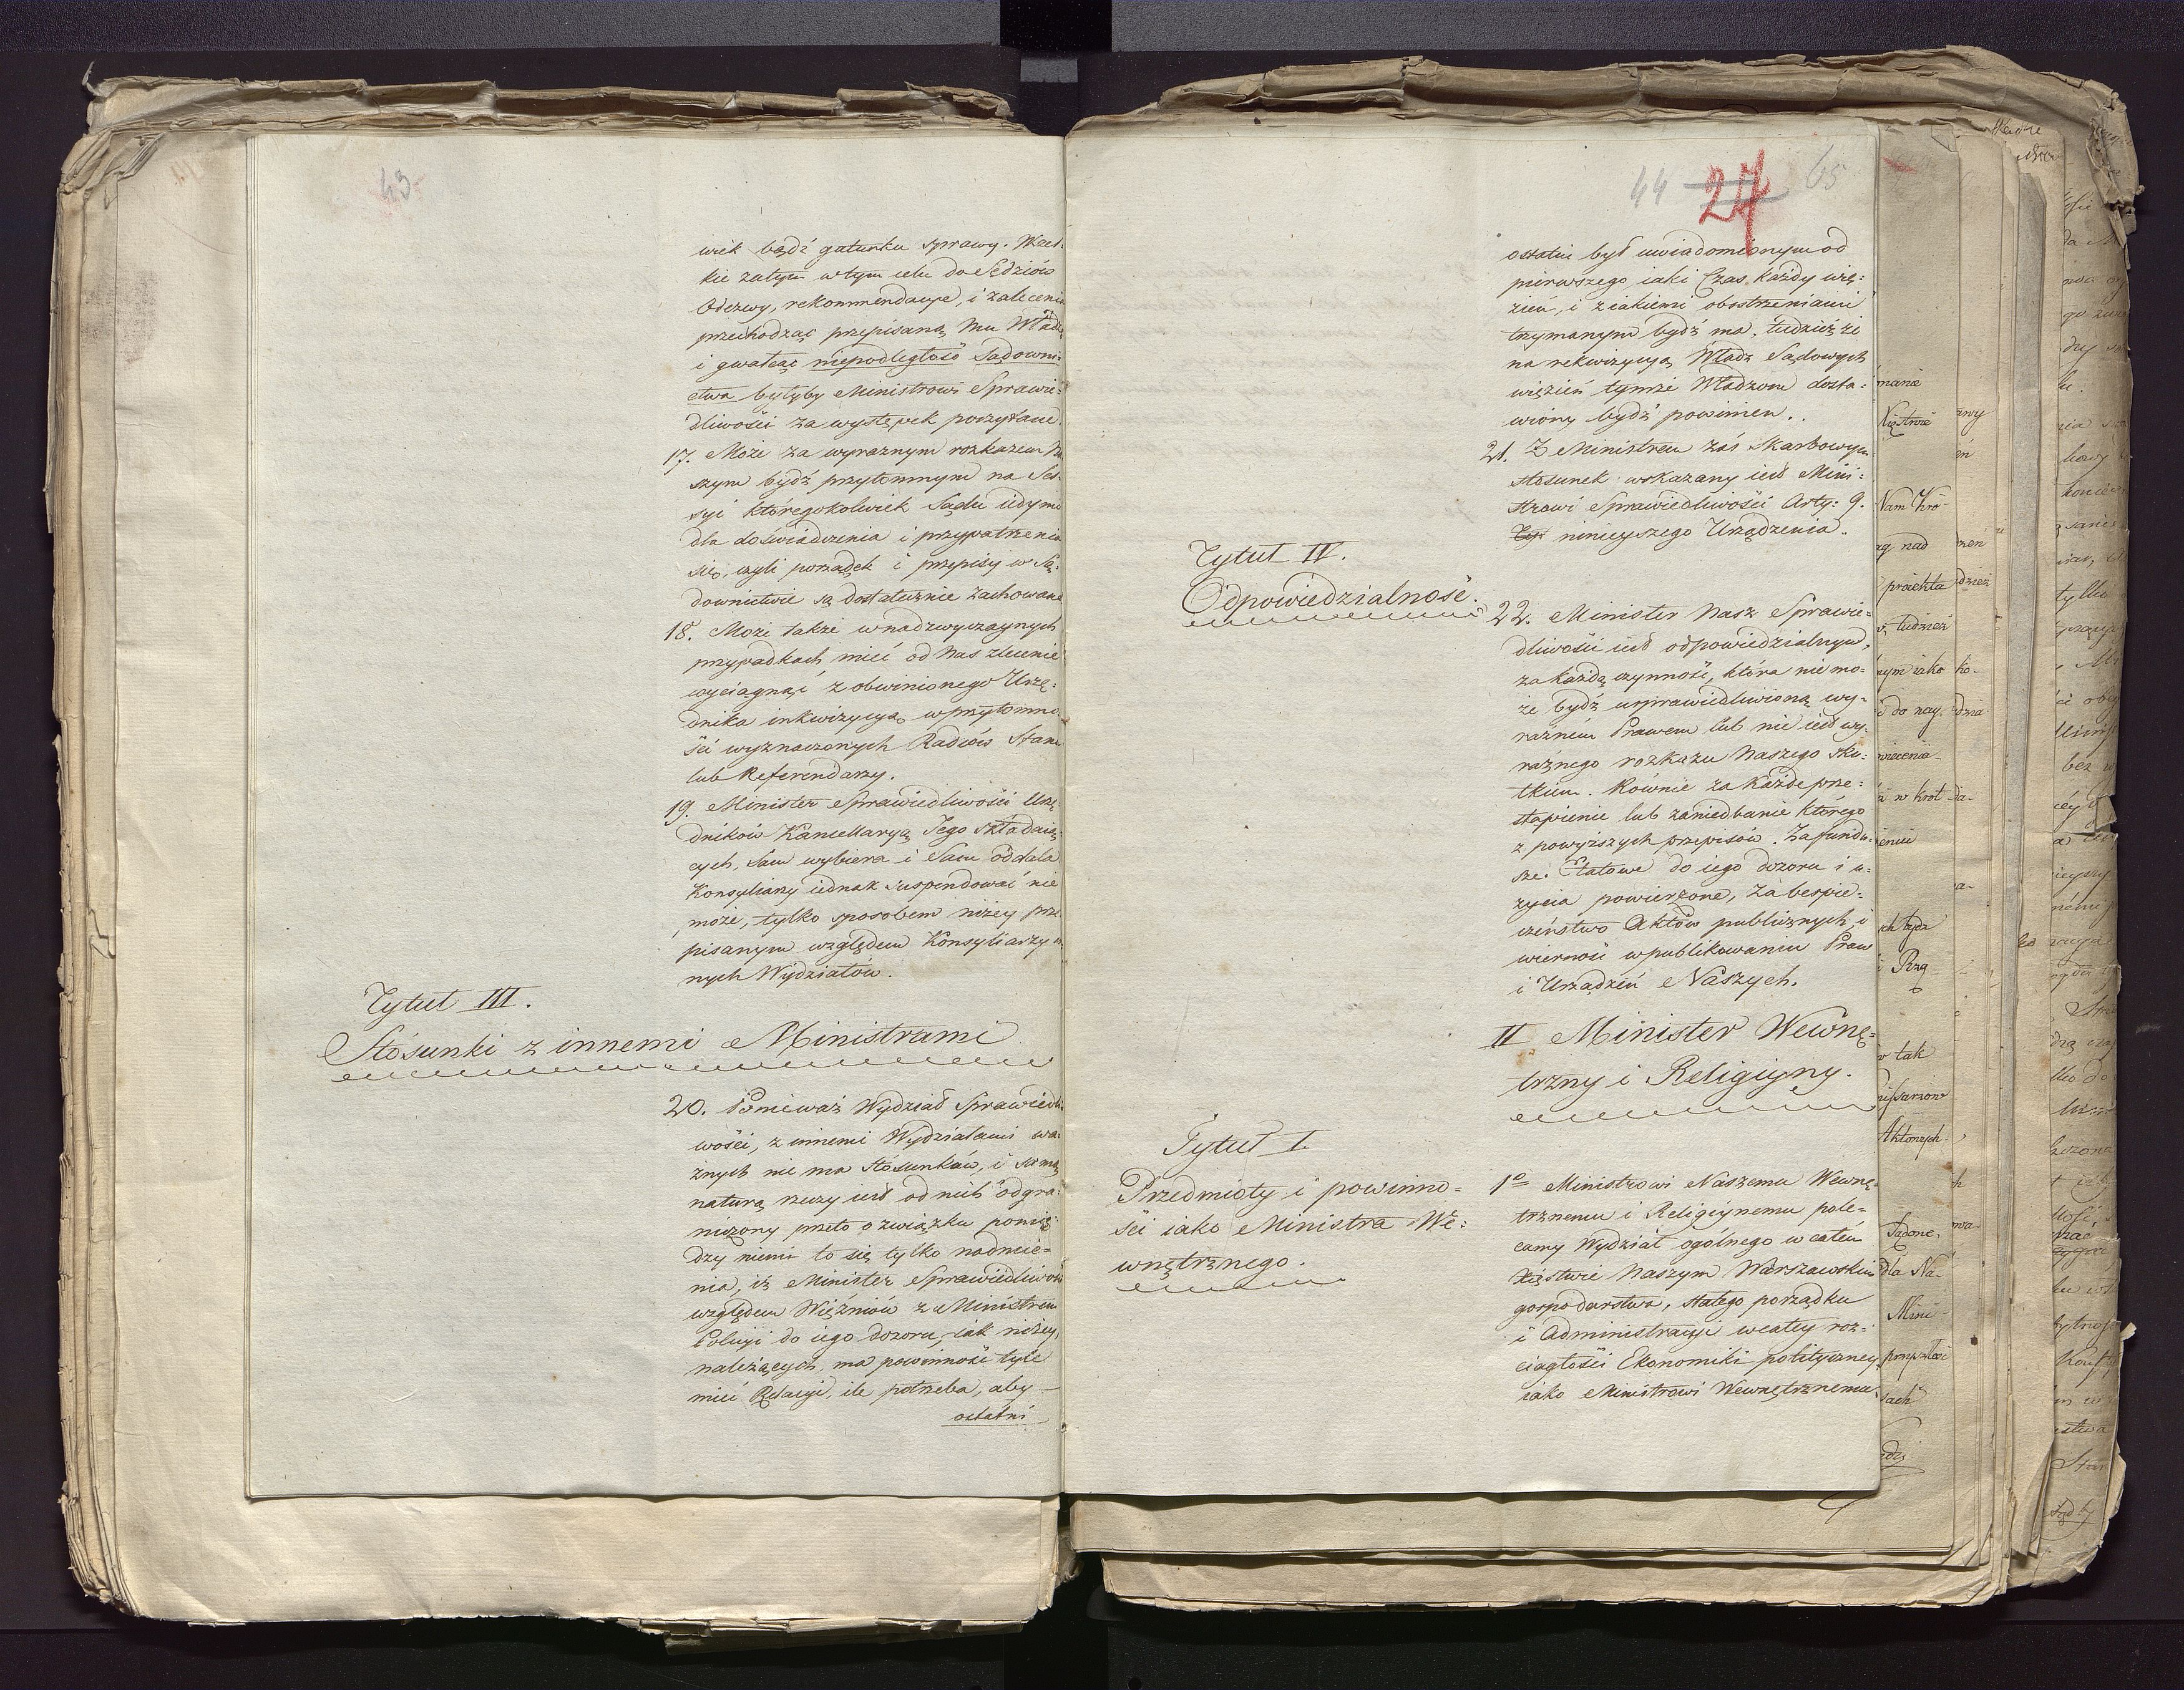 43
wiek bądź gatunku sprawy. Wszel-
kie zatym w tym celu do Sędziów
Odezwy, rekommendacye, i zalecenia
przechodząc przepisaną Mu Władzę
i gwałcąc niepodległość Sądowni-
ctwa byłyby Ministrowi Sprawie-
dliwości za występek poczytane.
17. Może za wyraznym rozkazem Na
szym bydź przytomnym na Ses-
syi któregokolwiek Sądu iedynie
dla doświadczenia i przypatrzenia
się, czyli porządek i przepisy w Są-
downictwie są dostatecznie zachowane
18. Może także w nadzwyczaynych
przypadkach mieć od Nas zlecenie
wyciągnąć z obwinionego Urzę-
dnika inkwizycyą w przytomno-
ści wyznaczonych Radców Stanu
lub Referendarzy.
19. Minister Sprawiedliwości Urzę
dników Kancellaryą Jego składaią-
cych, Sam wybiera i Sam oddala
Konsyliarzy iednak suspendować nie
może, tylko sposobem niżey prze
pisanym względem Konsyliarzy in-
nych Wydziałów.
Tytuł III.
Stosunki z innemi Ministrami
20. Ponieważ Wydział Sprawiedli
wości, z innemi Wydziałami wa-
żnych nie ma Stosunków, i samą
naturą rzeczy iest od nich odgra-
niczony przeto o związku pomię-
dzy niemi to się tylko nadmie-
nia, iż Minister Sprawiedliwości
względem Więźniów z Ministrem
Policyi do iego dozoru, iak niżey,
należących, ma powinność tyle
mieć Relacyi, ile potrzeba, aby
ostatni
44 27 65
ostatni był uwiadomionym od
pierwszego iaki Czas każdy wię-
zień, i z iakiemi obostrzeniami
trzymanym bydź ma, tudzież że
na rekwizycyą Władz Sądowych
więzień tymże Władzom dosta-
wiony bydź powinien.
21. Z Ministrem zaś Skarbowym
stosunek wskazany iest Mini-
strowi Sprawiedliwości Arty: 9.
ninieyszego Urządzenia.
Tytuł IV.
Odpowiedzialność.
22. Minister Nasz Sprawie-
dliwości iest odpowiedzialnym,
za każdą czynność, która nie mo-
że bydź usprawiedliwioną wy-
raźném Prawem lub nie iest wy-
raźnego rozkazu Naszego sku-
tkiem. Równie za każde prze-
stąpienie lub zaniedbanie którego
z powyższych przepisów. Za fundu-
sze Etatowe do iego dozoru i u-
życia powierzone, Za bespie-
czeństwo Aktów publicznych, i
wierność w publikowaniu Praw
i Urządzeń Naszych.
II Minister Wewnę-
trzny i Religiyny.
Tytuł I.
Przedmioty i powinno-
ści iako Ministra We-
wnętrznego.
1o Ministrowi Naszemu Wewnę-
trznemu i Religiynemu pole-
camy Wydział ogólnego w całém
Xięstwie Naszym Warszawskim
gospodarstwa, stałego porządku
i Administracyi w całey roz-
ciągłości Ekonomiki polityczney
iako Ministrowi Wewnętrznemu